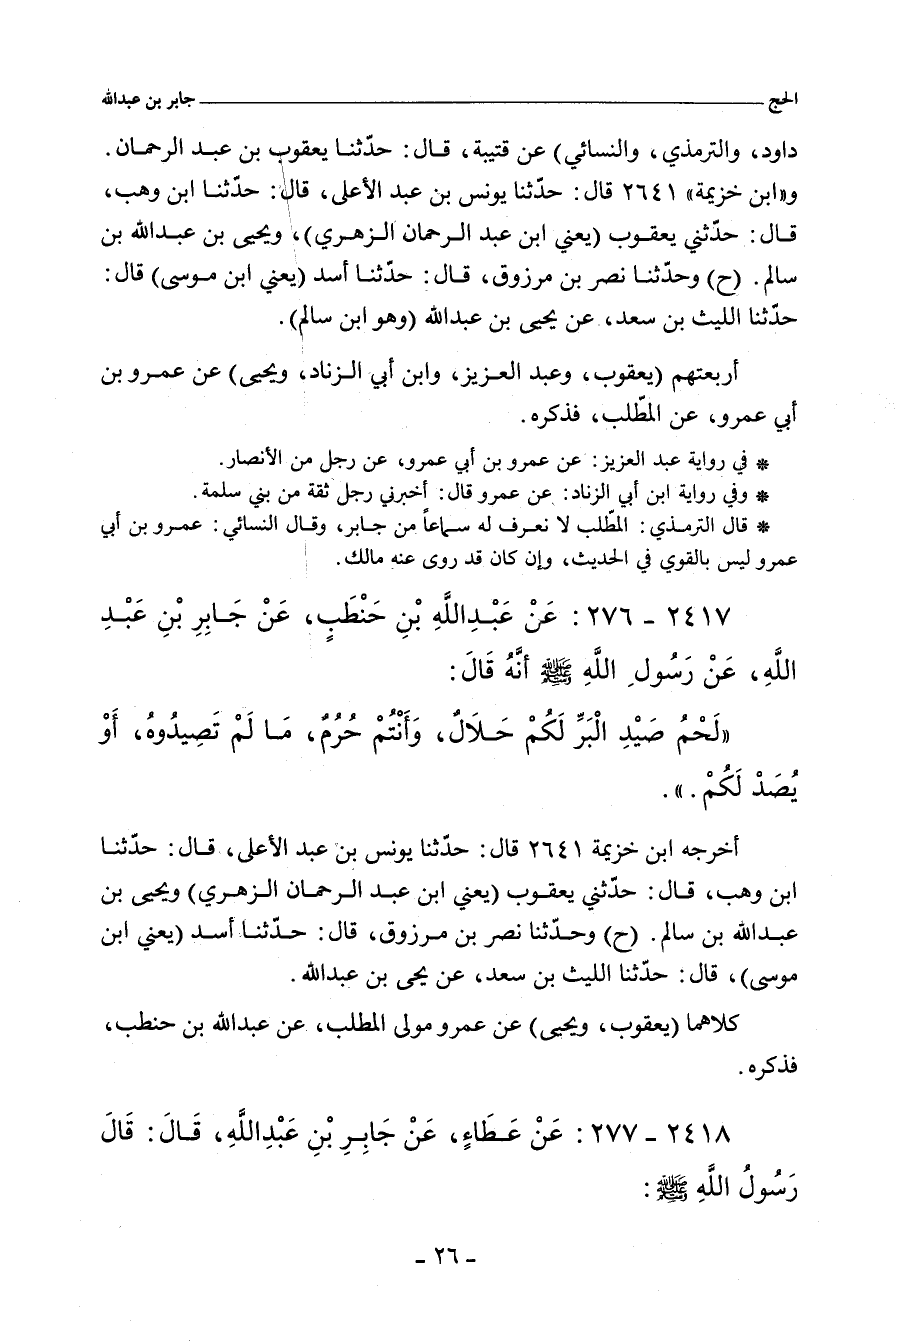 الحج ــــــــــــــــــــــــــــــــــــــ جابر بن عبدالله
داود، والترمذي، والنسائي) عن قتيبة، قال: حدّثنا يعقوب بن عبد الرحمان.
و«ابن خزيمة» ٢٦٤١ قال: حدّثنا يونس بن عبد الأعلى، قال: حدّثنا ابن وهب،
قال: حدّثني يعقوب (يعني ابن عبد الرحمان الزهري)، ويحيى بن عبدالله بن
سالم. (ح) وحدّثنا نصر بن مرزوق، قال: حدّثنا أسد (يعني ابن موسى) قال:
حدّثنا الليث بن سعد، عن يحيى بن عبدالله (وهو ابن سالم).
أربعتهم (يعقوب، وعبد العزيز، وابن أبي الزناد، ويحيى) عن عمرو بن
أبي عمرو، عن المطّلب، فذكره.
* في رواية عبد العزيز: عن عمرو بن أبي عمرو، عن رجل من الأنصار.
* وفي رواية ابن أبي الزناد: عن عمرو قال: أخبرني رجل ثقة من بني سلمة.
* قال الترمذي: المطّلب لا نعرف له سماعاً من جابر، وقال النسائي: عمرو بن أبي
عمرو ليس بالقوي في الحديث، وإن كان قد روى عنه مالك.
٢٤١٧ - ٢٧٦: عَنْ عَبْدِاللَّهِ بْنِ حَنْطَبٍ، عَنْ جَابِرِ بْنِ عَبْدِ
اللَّهِ، عَنْ رَسُولِ اللَّهِ ﷺ أَنَّهُ قَالَ:
«لَحْمُ صَيْدِ الْبَرِّ لَكُمْ حَلَالٌ، وَأَنْتُمْ حُرُمٌ، مَا لَمْ تَصِيدُوهُ، أَوْ
يُصَدْ لَكُمْ.».
أخرجه ابن خزيمة ٢٦٤١ قال: حدّثنا يونس بن عبد الأعلى، قال: حدّثنا
ابن وهب، قال: حدّثني يعقوب (يعني ابن عبد الرحمان الزهري) ويحيى بن
عبدالله بن سالم. (ح) وحدّثنا نصر بن مرزوق، قال: حدّثنا أسد (يعني ابن
موسى)، قال: حدّثنا الليث بن سعد، عن يحيى بن عبدالله.
كلاهما (يعقوب، ويحيى) عن عمرو مولى المطلب، عن عبدالله بن حنطب،
فذكره.
٢٤١٨ - ٢٧٧: عَنْ عَطَاءٍ، عَنْ جَابِرِ بْنِ عَبْدِاللَّهِ، قَالَ: قَالَ
رَسُولُ اللَّهِ ﷺ:
- ٢٦ -